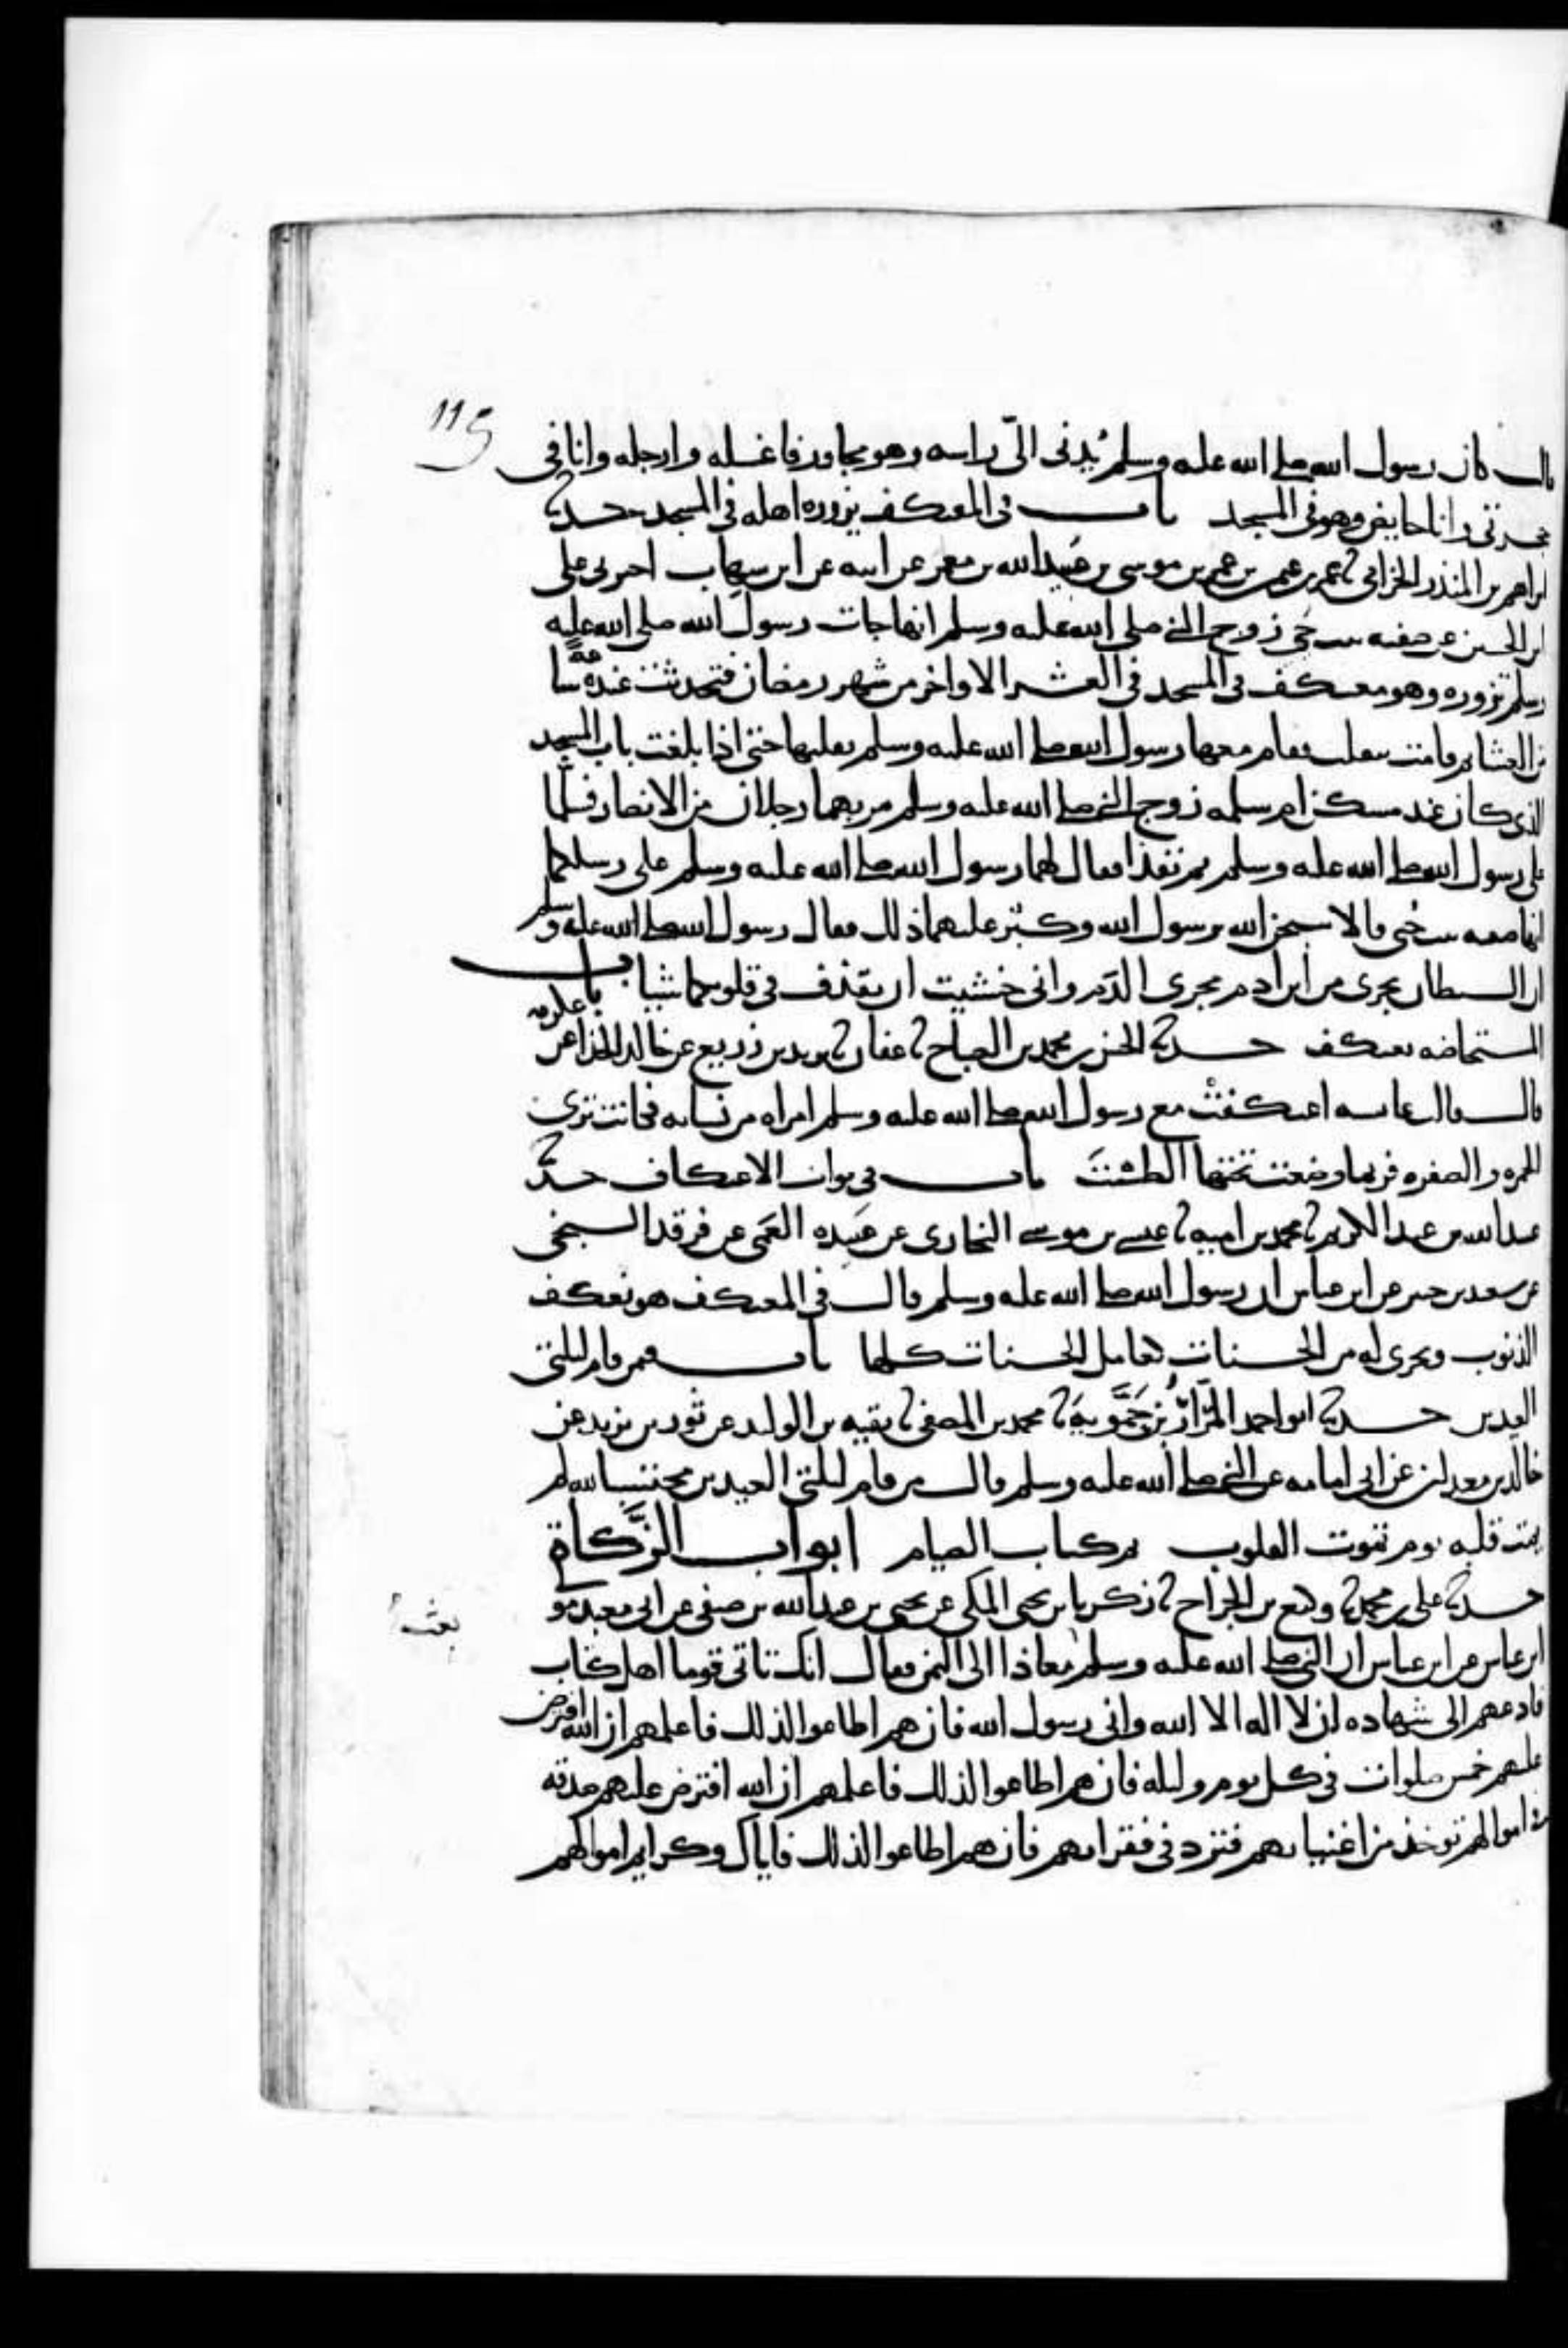 115
قالت كان رسول الله صلى الله عليه وسلم يُدنى الىّ راسه وهو مجاور فاغسله وارجله وانا فى
حجرتى وانا حايض وهو فى المسجد باب فى المعتكف يزوره اهله فى المسجد حدثنا
ابراهيم بن المنذر الحزامى ثنا عمر بن عثمن بن عمر بن موسى بن عبيد الله بن معمر عن ابيه عن ابن شهاب اخبرنى على
ابن الحسين عن صفيه بنت حيى زوج النبى صلى الله عليه وسلم انها جات رسول الله صلى الله عليه
وسلم تزوره وهو معتكف فى المسجد فى العشر الاواخر من شهر رمضان فتحدثت عنده ساعة
من العشا ثم قامت تنقلب فقام معها رسول الله صلى الله عليه وسلم يقلبها حتى اذا بلغت باب المسجد
الذى كان عند مسكن ام سلمه زوج النبى صلى الله عليه وسلم مر بهما رجلان من الانصار فسلّما
على رسول الله صلى الله عليه وسلم ثم نفذا فقال لهما رسول الله صلى الله عليه وسلم على رسلكما
انها صفيه بنت حُيى قالا سبحن الله يرسول الله وكبُر عليهما ذلك فقال رسول الله صلى الله عليه وسلم
ان الشيطان يجرى من ابن ادم مجرى الدم وانى خشيت ان يقذف فى قلوبكما شيا باب
المستحاضه تعتكف حدثنا الحسن بن محمد بن الصباح ثنا عفان ثنا يزيد بن زريع عن خالد الحذا عن عكرمه
قال قالت عايشه اعتكفتْ مع رسول الله صلى الله عليه وسلم امراه من نسايه فكانت ترى
الحمره والصفره فربما وضعت تحتها الطشتَ باب فى ثواب الاعتكاف حدثنا
عبد الله بن عبد الكريم ثنا محمد بن اميه ثنا عيسى بن موسى البخارى عن عَبيده العَمى عن فرقد السبخى
عن سعيد بن جبير عن ابن عباس ان رسول الله صلى الله عليه وسلم قال فى المعتكف هو يعكف
الذنوب ويجرى له من الحسنات كعامل الحسنات كلها باب فيمن قام ليلتى
العيدين حدثنا ابو احمد المَرّارُ بن حَمَّويَهَ ثنا محمد بن المصفى ثنا بقيه بن الوليد عن ثور بن يزيد عن
خالد بن معدان عن ابى امامه عن النبى صلى الله عليه وسلم قال من قام ليلتى العيدين محتسبا لله لم
يمت قلبه يوم تموت القلوب تم كتاب الصيام ابواب الزَّكاة
حدثنا على بن محمد ثنا وكيع بن الجراح ثنا زكريا بن يحيى المكى عن يحيى بن عبد الله بن صيفى عن ابى معبد مو
ابن عباس عن ابن عباس ان النبى صلى الله عليه وسلم معاذا الى اليمن فقال انك تاتى قوما اهل كتاب
بعث
فادعهم الى شهاده ان لا اله الا الله وانى رسول الله فان هم اطاعوا لذلك فاعلمهم ان الله افترض
عليهم خمس صلوات فى كل يوم وليله فان هم اطاعوا لذلك فاعلمهم ان الله افترض عليهم صدقه
فى اموالهم توخذ من اغنيايهم فترد فى فقرايهم فان هم اطاعوا لذلك فاياك وكرايم اموالهم